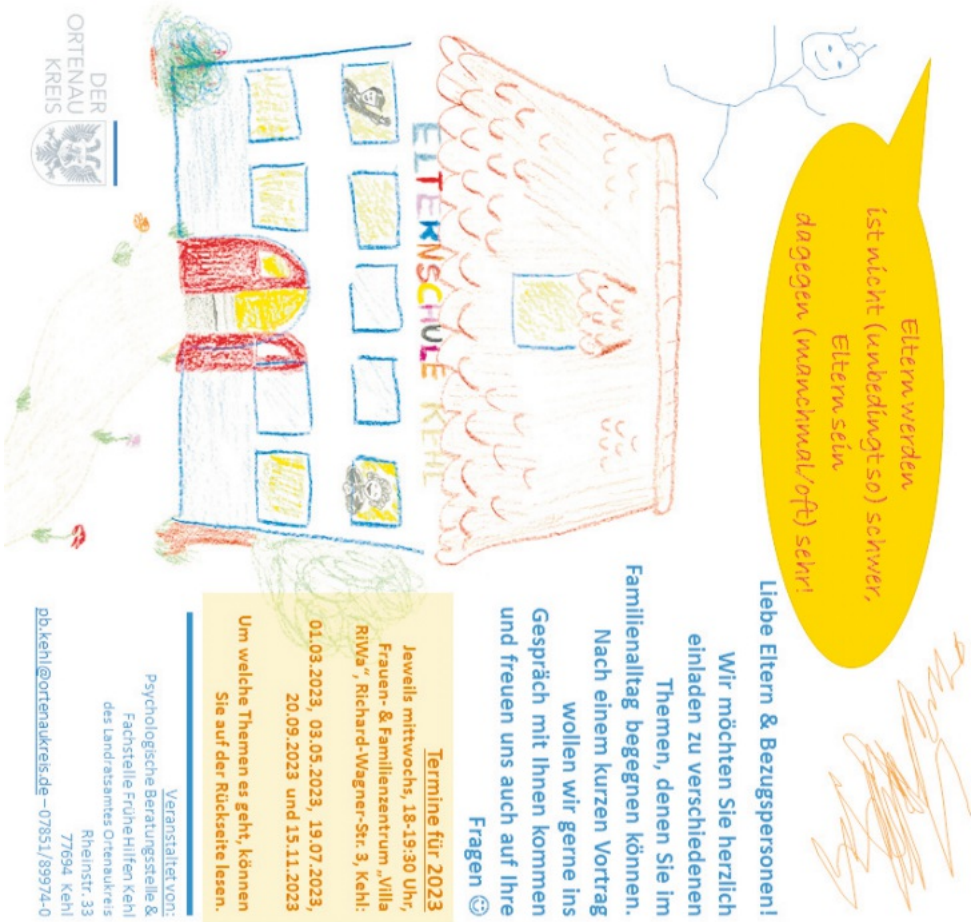 Eltern werden
ist nicht (unbedingt so) schwer,
Eltern sein
dagegen (manchmal/oft) sehr!
ELTERNSCHULE KEHL
DER
ORTENAU
KREIS
Liebe Eltern & Bezugspersonen!
Wir möchten Sie herzlich
einladen zu verschiedenen
Themen, denen Sie im
Familienalltag begegnen können.
Nach einem kurzen Vortrag
wollen wir gerne ins
Gespräch mit Ihnen kommen
und freuen uns auch auf Ihre
Fragen ☺
Termine für 2023
Jeweils mittwochs, 18-19:30 Uhr,
Frauen- & Familienzentrum „Villa
RiWa“, Richard-Wagner-Str. 3, Kehl:
01.03.2023, 03.05.2023, 19.07.2023,
20.09.2023 und 15.11.2023
Um welche Themen es geht, können
Sie auf der Rückseite lesen.
Veranstaltet von:
Psychologische Beratungsstelle &
Fachstelle Frühe Hilfen Kehl
des Landratsamtes Ortenaukreis
Rheinstr. 33
77694 Kehl
pb.kehl@ortenaukreis.de – 07851/89974-0